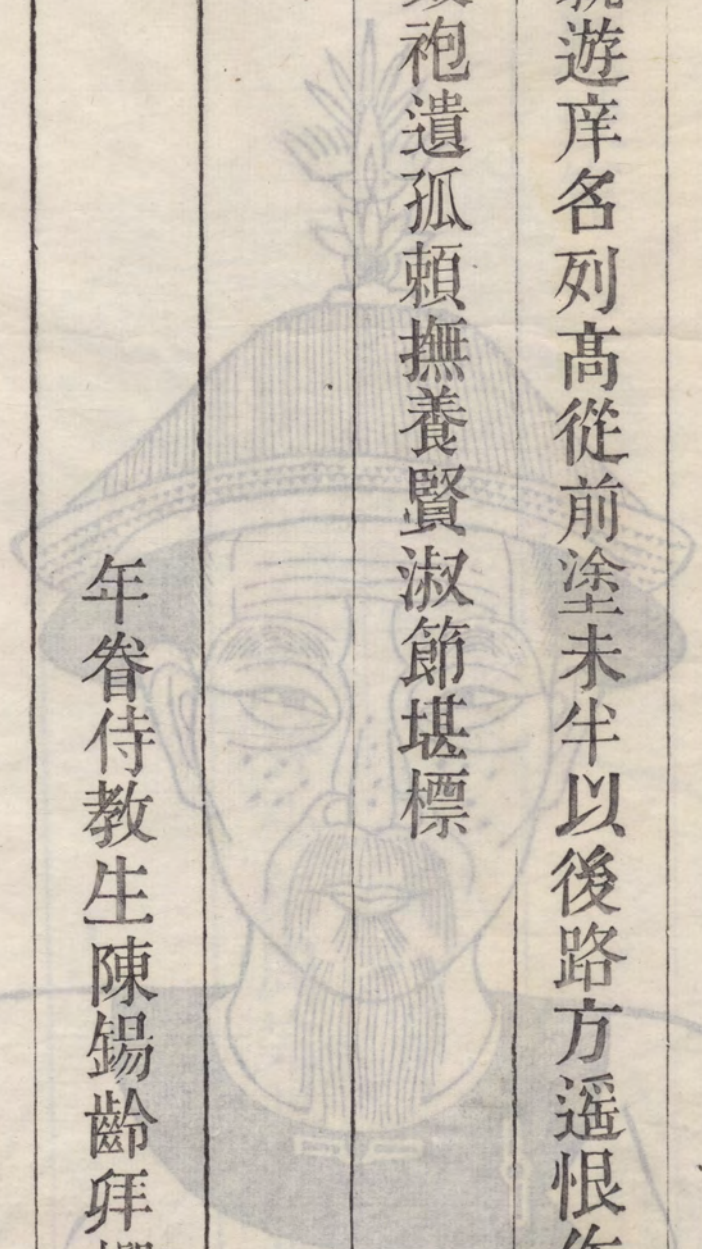 遊庠名列髙從前塗未半以後路方遥恨
袍遺孤頼撫養賢淑節堪標
年眷侍教生陳錫齡拜